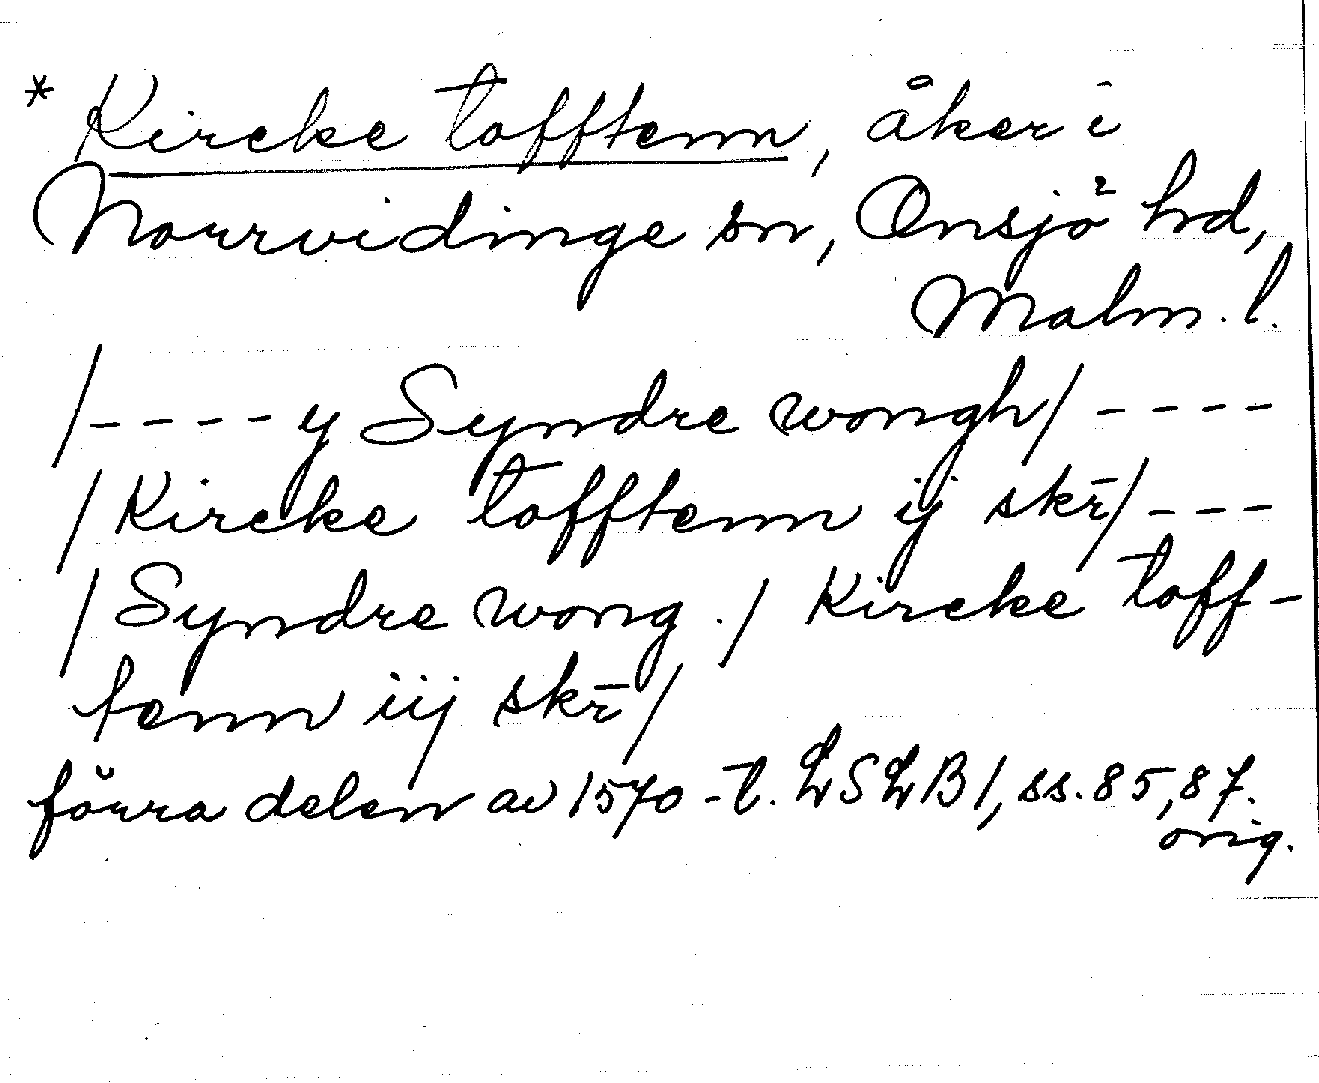 * Kircke tofftenn, åker i
Norrvidinge sn, Onsjö hd,
Malm. l.
/---- y Syndre wongh/ ----
/Kircke tofftenn ij skr̄/ ---
/Syndre wong ./ Kircke toff-
tenn iij skr̄/
förra delen av 1570-t. LSLB 1, ss. 85, 87.
orig.